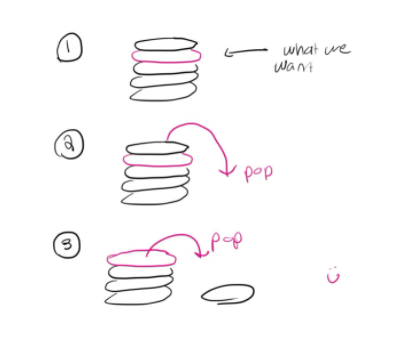 1
what we
want
2
pop
3
pop